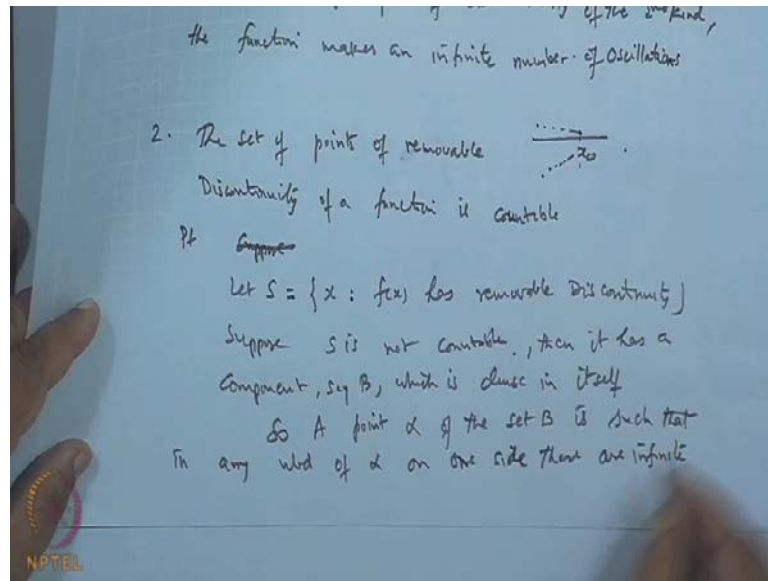 of the 2nd kind,
the function makes an infinite number of Oscillations
2. The set of points of removable
x₀
Discontinuity of a function is countable
Pf
Let S = {x : f(x) has removable Discontinuity}
Suppose S is not countable, then it has a
Component, say B, which is dense in itself
So A point α of the set B is such that
in any nbd of α on one side there are infinite
NPTEL